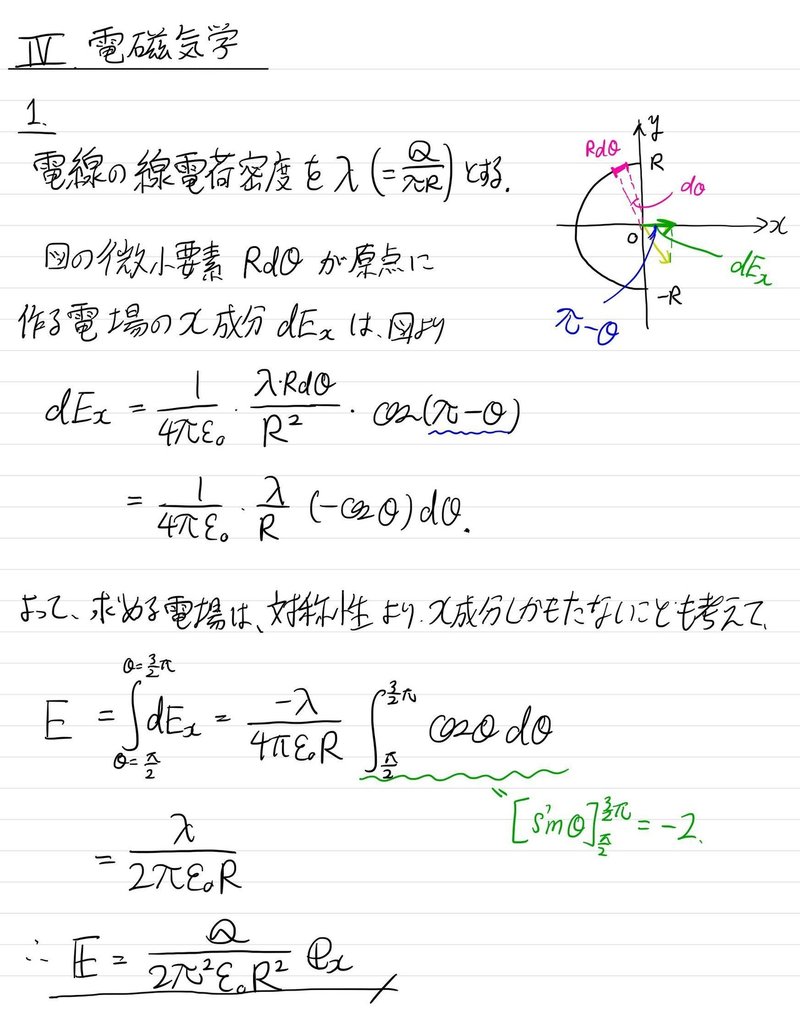 IV. 電磁気学
1.
電線の線電荷密度を λ (= Q/πR) とする.
y
R
Rdθ
dθ
x
O
dEx
-R
π-θ
図の微小要素 Rdθ が原点に
作る電場の x 成分 dEx は、図より
dEx = 1/4πε₀ · λ·Rdθ/R² · cos(π-θ)
= 1/4πε₀ · λ/R (-cosθ)dθ.
よって、求める電場は、対称性より、x成分しかもたないことも考えて、
E = ∫_{θ=π/2}^{θ=3/2π} dEx = -λ/4πε₀R ∫_{π/2}^{3/2π} cosθ dθ
〃 [sinθ]_{π/2}^{3/2π} = -2.
= λ/2πε₀R
∴ 𝔼 = Q/2π²ε₀R² 𝕖x